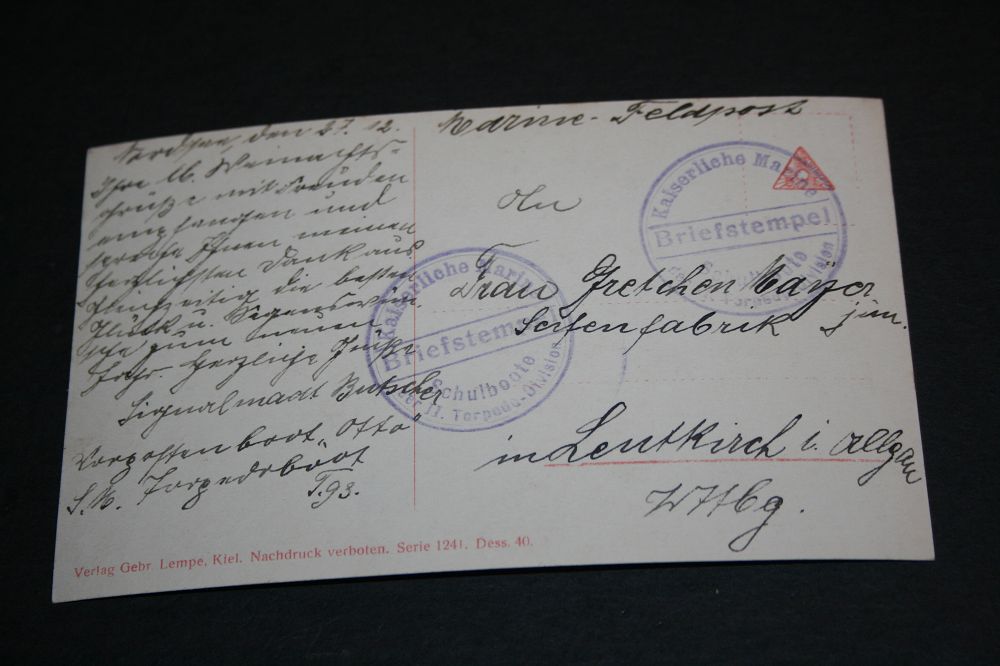 Nordsee, den 27. 12.
Ihre lb. Weinachts-
grüße mit Freuden
empfangen und
spreche Ihnen meinen
herzlichsten Dank aus
Gleichzeitig die besten
Glück u. Segenswün
sche zum neuen
Jahr. Herzliche Grüße
Signalmaat Butscher
Vorpostenboot "Otto"
S.M. Torpedoboot
T.93.
Marine-Feldpost
An
Frau Gretchen Mayer
Seifenfabrik jun.
in Leutkirch i. Allgäu
Wttbg.
Kaiserliche Marine
Briefstempel
Schulboote
der II. Torpedo-Division
Kaiserliche Marine
Briefstempel
Schulboote
der II. Torpedo-Division
Verlag Gebr. Lempe, Kiel. Nachdruck verboten. Serie 1241. Dess. 40.